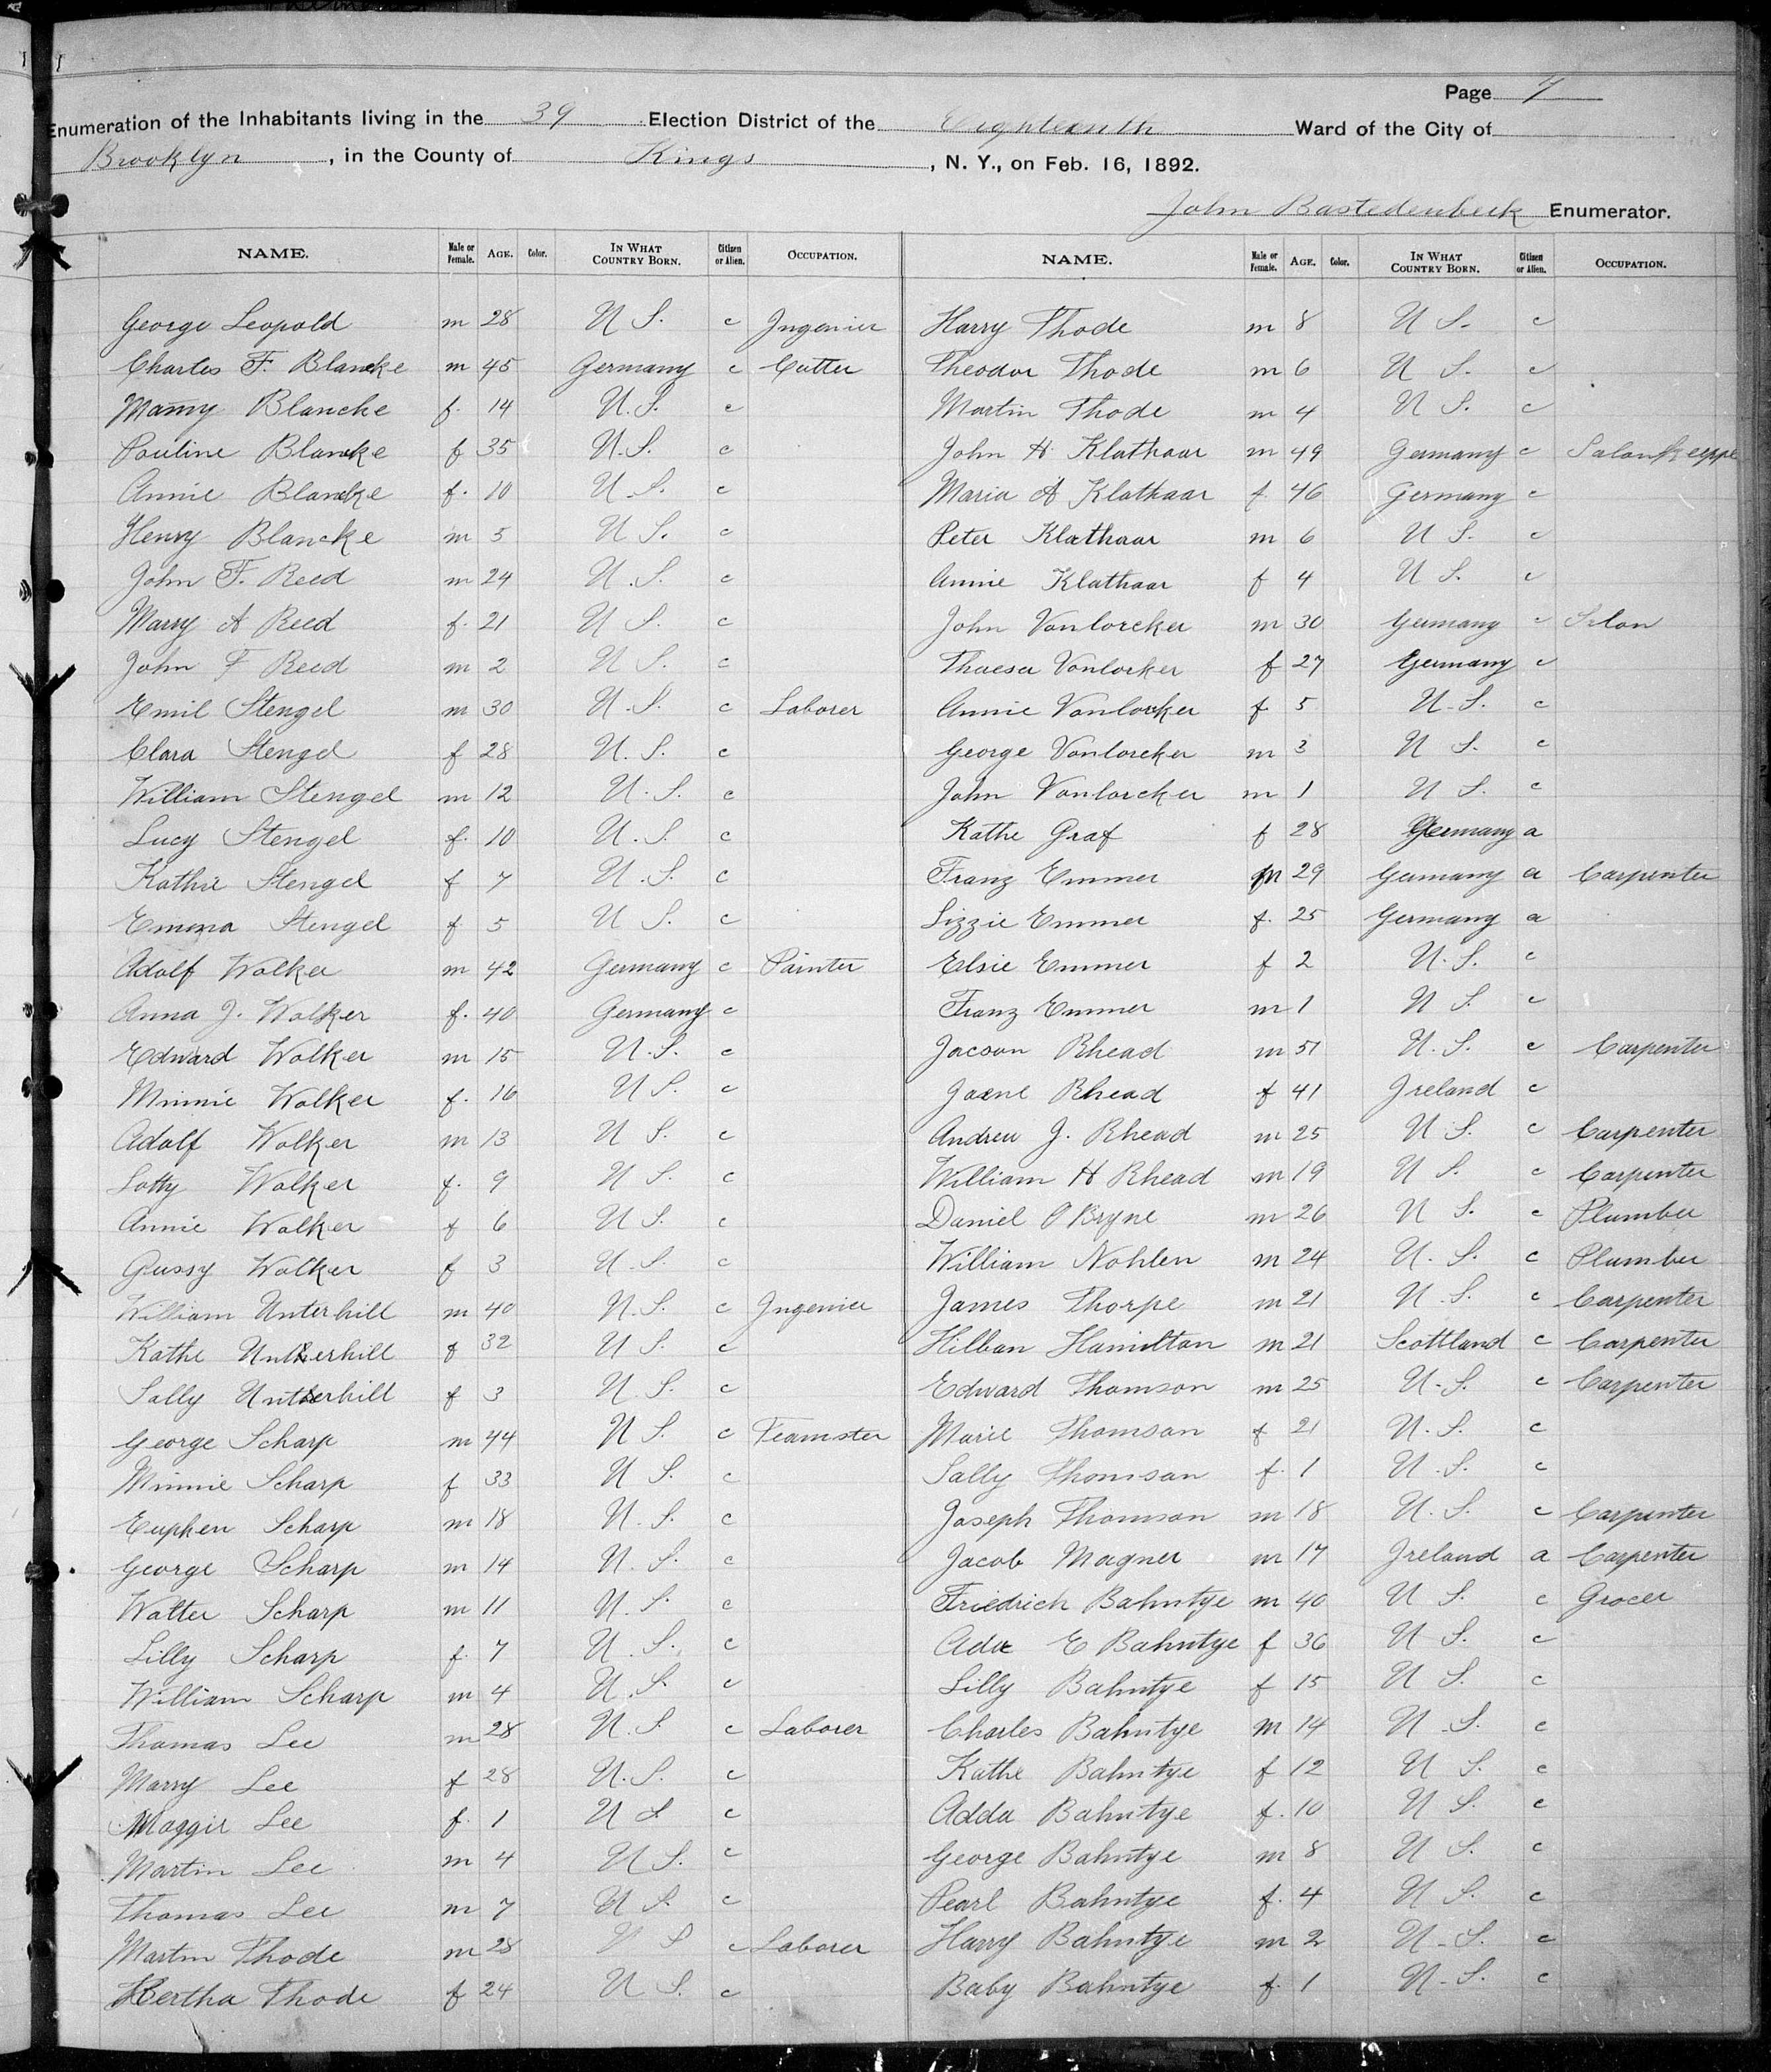 Page 7
Enumeration of the Inhabitants living in the 39 Election District of the Eighteenth Ward of the City of
Brooklyn, in the County of Kings, N. Y., on Feb. 16, 1892.
John Bastedenbeck Enumerator.
NAME. Male or Female. AGE. Color. IN WHAT COUNTRY BORN. Citizen or Alien. OCCUPATION.
George Leopold m 28 U S. c Ingenier
Charles F. Blancke m 45 Germany c Cutter
Mamy Blancke f. 14 U.S. c
Pauline Blancke f 35 U.S. c
Annie Blancke f. 10 U.S. c
Henry Blancke m 5 U S. c
John F. Reed m 24 U.S. c
Marry A Reed f. 21 U S. c
John F Reed m 2 U S. c
Emil Stengel m 30 U.S. c Laborer
Clara Stengel f 28 U.S. c
William Stengel m 12 U.S. c
Lucy Stengel f. 10 U.S. c
Kathie Stengel f 7 U.S. c
Emma Stengel f. 5 U S. c
Adolf Walker m 42 Germany c Painter
Anna J. Walker f. 40 Germany c
Edward Walker m 15 U.S. c
Minnie Walker f. 16 U S. c
Adolf Walker m 13 U S. c
Lotty Walker f. 9 U S. c
Annie Walker f 6 U S. c
Gussy Walker f 3 U.S. c
William Unterhill m 40 U.S. c Ingenier
Kathe Unterhill f 32 U S. c
Sally Unterhill f 3 U.S. c
George Scharp m 44 U S. c Teamster
Minnie Scharp f 33 U S. c
Euphen Scharp m 18 U.S. c
George Scharp m 14 U.S. c
Walter Scharp m 11 U.S. c
Lilly Scharp f. 7 U.S. c
William Scharp m 4 U.S. c
Thomas Lee m 28 U.S. c Laborer
Marry Lee f 28 U.S. c
Maggie Lee f. 1 U S c
Martin Lee m 4 U S. c
Thomas Lee m 7 U S. c
Martin Thode m 28 U S c Laborer
Bertha Thode f 24 U S. c
NAME. Male or Female. AGE. Color. IN WHAT COUNTRY BORN. Citizen or Alien. OCCUPATION.
Harry Thode m 8 U S. c
Theodor Thode m 6 U S. c
Martin Thode m 4 U S. c
John H. Klathaar m 49 Germany c
Maria A Klathaar f. 46 Germany c
Peter Klathaar m 6 U S. c
Annie Klathaar f 4 U S. c
John Vonlorcker m 30 Germany c Salon
Thaesa Vonlorker f 27 Germany c
Annie Vonlorker f. 5 U.S. c
George Vonlorcker m 3 U S. c
John Vonlorcker m 1 U S. c
Kathe Graf f 28 Germany a
Franz Emmer m 29 Germany a Carpenter
Lizzie Emmer f. 25 Germany a
Elsie Emmer f 2 U.S. c
Franz Emmer m 1 U S. c
Jacson Rhead m 51 U.S. c Carpenter
Jaene Rhead f 41 Ireland c
Andrew J. Rhead m 25 U S. c Carpenter
William H Rhead m 19 U S. c Carpenter
Daniel O Bryne m 26 U S. c Plumber
William Nohlen m 24 U.S. c Plumber
James Thorpe m 21 U.S. c Carpenter
Hilban Hamilton m 21 Scottland c Carpenter
Edward Thomson m 25 U.S. c Carpenter
Marie Thomson f 21 U.S. c
Sally Thomson f. 1 U.S. c
Joseph Thomson m 18 U.S. c Carpenter
Jacob Magner m 17 Ireland a Carpenter
Friedrich Bahntye m 40 U S. c Grocer
Ada E Bahntye f 36 U S. c
Lilly Bahntye f 15 U S. c
Charles Bahntye m 14 U.S. c
Kathe Bahntye f 12 U S. c
Adda Bahntye f. 10 U S. c
George Bahntye m 8 U S. c
Pearl Bahntye f. 4 U S. c
Harry Bahntye m 2 U.S. c
Baby Bahntye f. 1 U.S. c